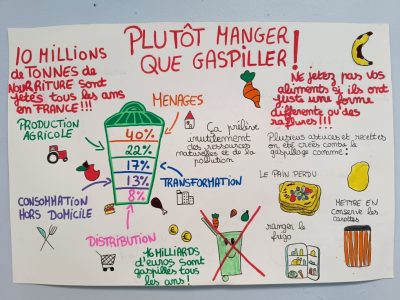 PLUTÔT MANGER
QUE GASPILLER !
10 MILLIONS
de TONNES de
NOURRITURE sont
jetés tous les ans
en FRANCE!!!
MENAGES
PRODUCTION
AGRICOLE
40%
22%
17%
13%
8%
TRANSFORMATION
CONSOMMATION
HORS DOMICILE
DISTRIBUTION
16 MILLIARDS
d'euros sont
gaspillés tous
les ans !
Ça prélève
inutilement
des ressources
naturelles et de la
pollution
NE jetez pas vos
aliments si ils ont
juste une forme
différente ou des
rayures!!!
Plusieurs astuces et recettes
on été créés contre le
gaspillage comme:
LE PAIN PERDU
METTRE EN
conserve les
carottes
ranger le
frigo